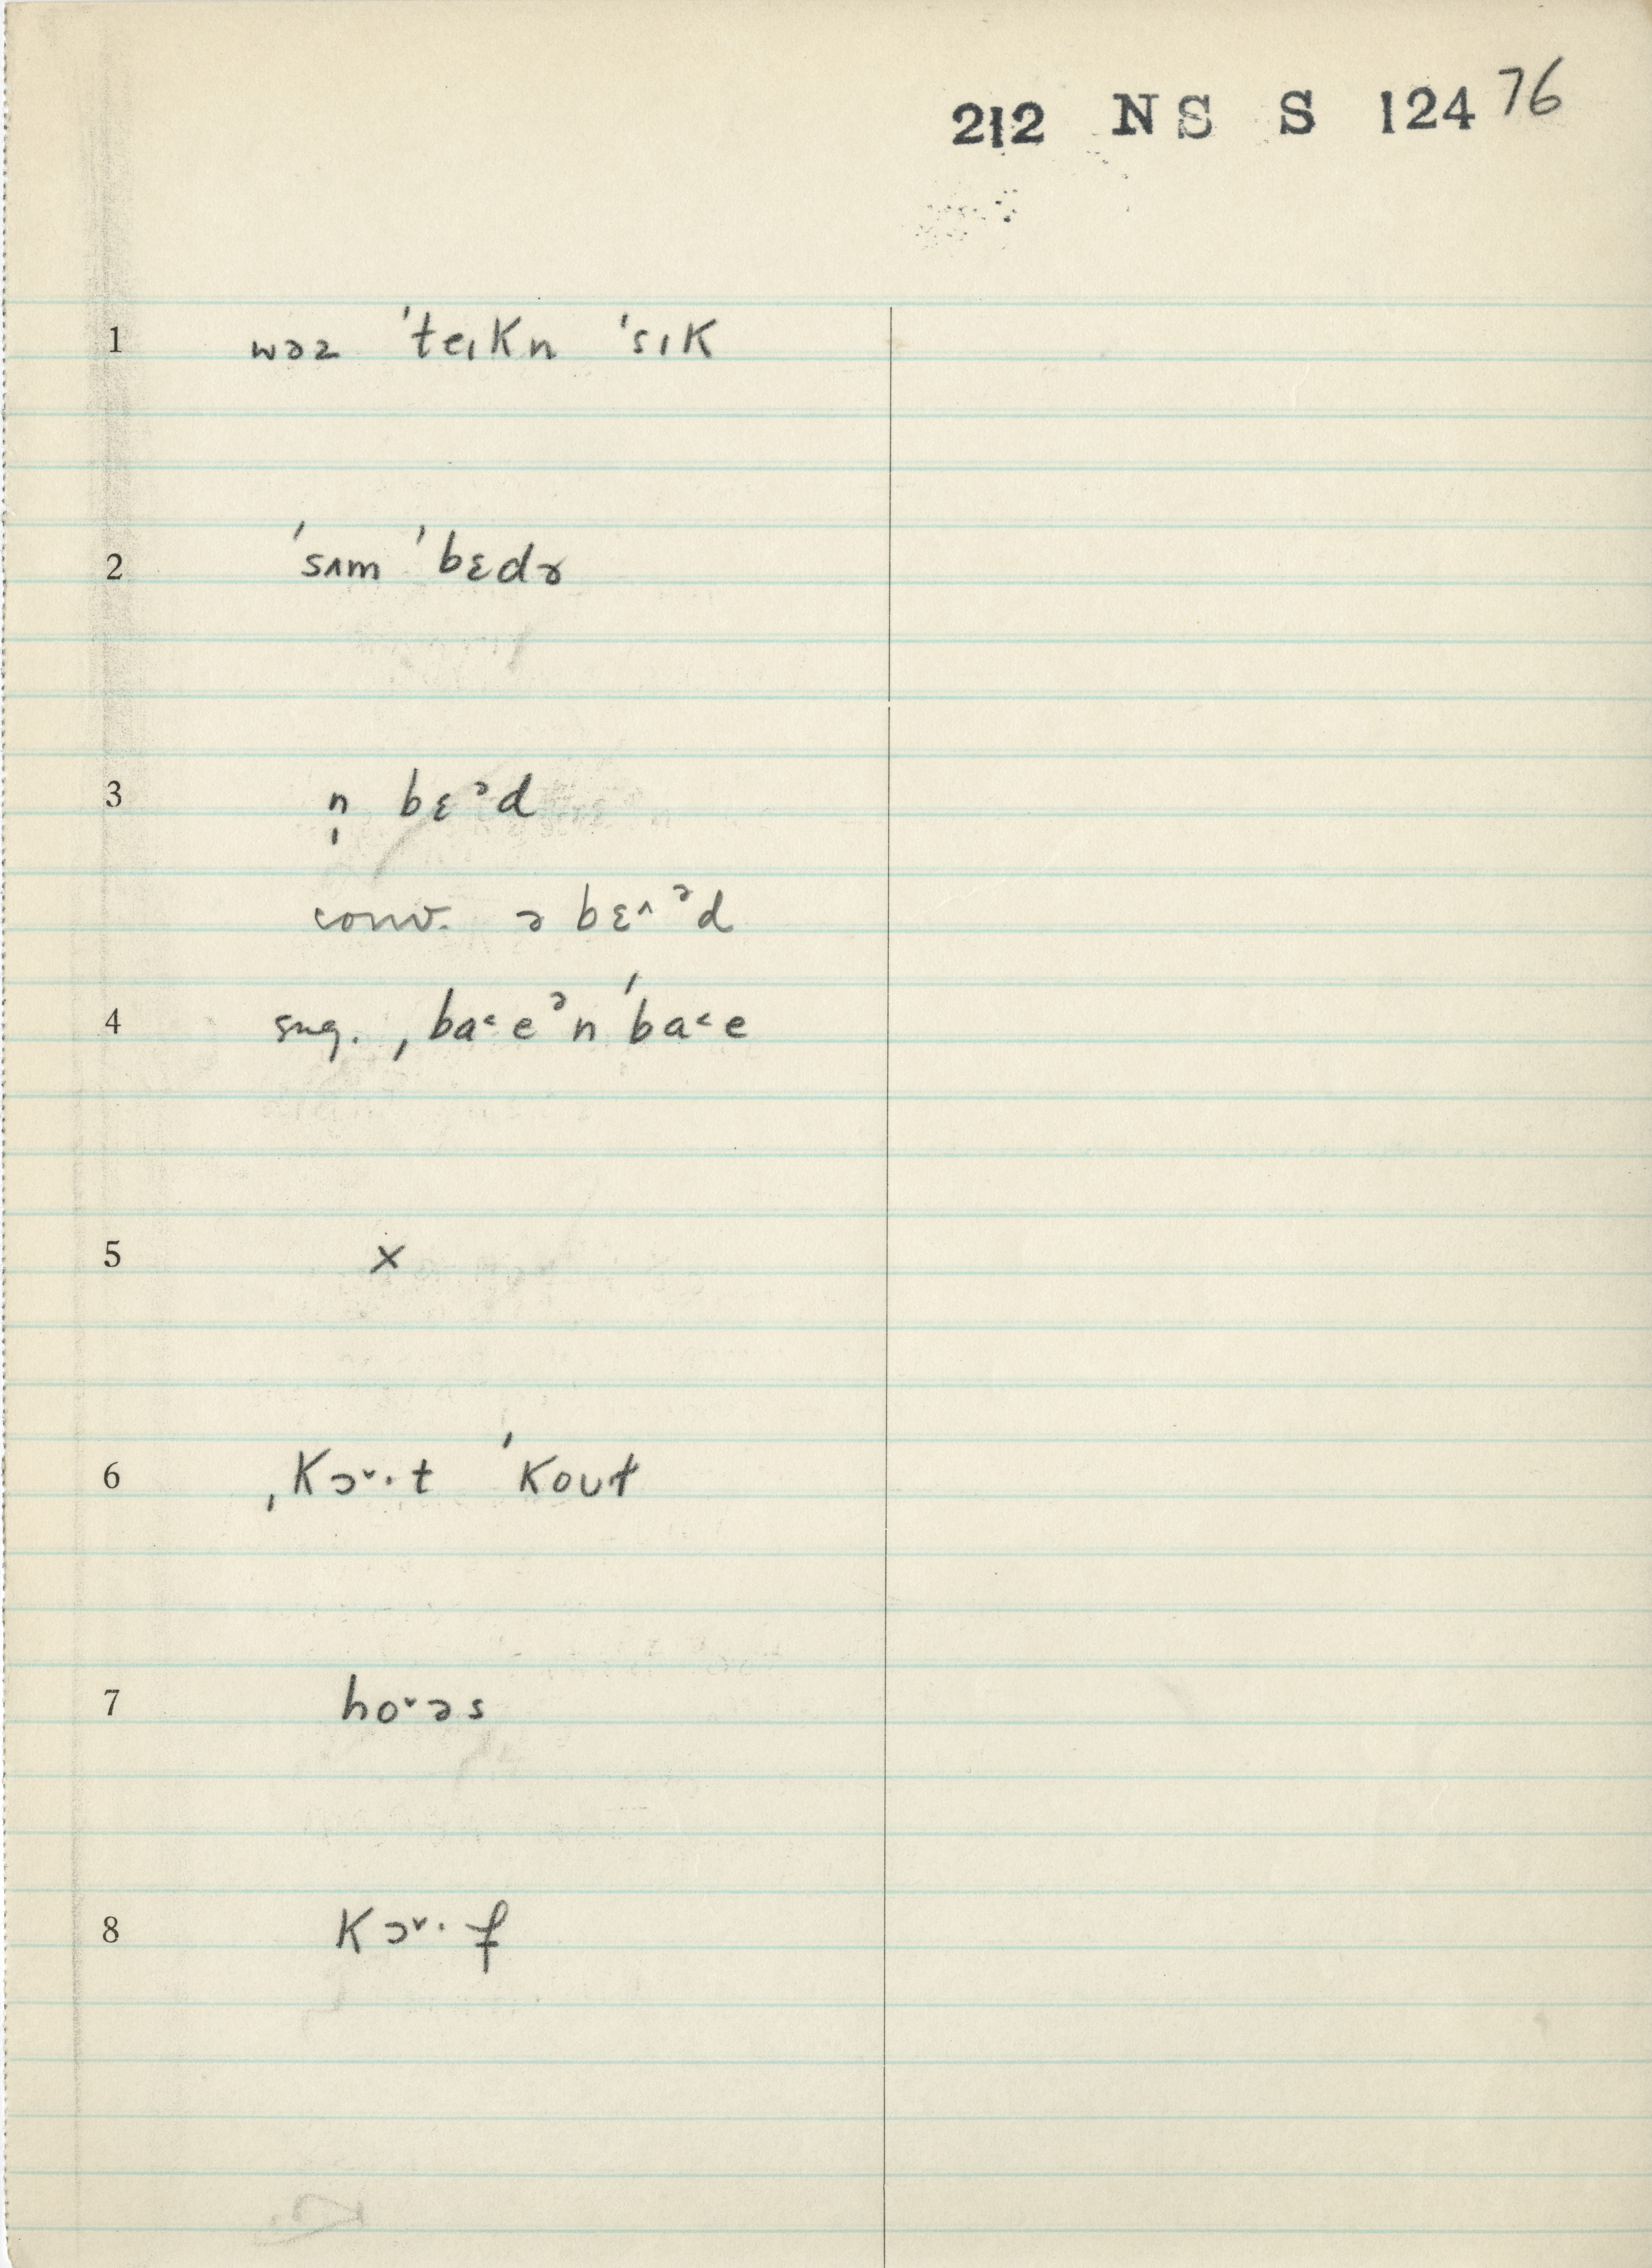 212 NS S 124 76
1 wəz ˈteɪkn ˈsɪk
2 ˈsʌm ˈbɛdɚ
3 n̩ bɛᵊd
conv. ə bɛ^ᵊd
4 sug. ˌba˂eᵊn ˈba˂e
5 x
6 ˌkɔ˅·t ˈkoʊt
7 ho˅əs
8 kɔ˅·f